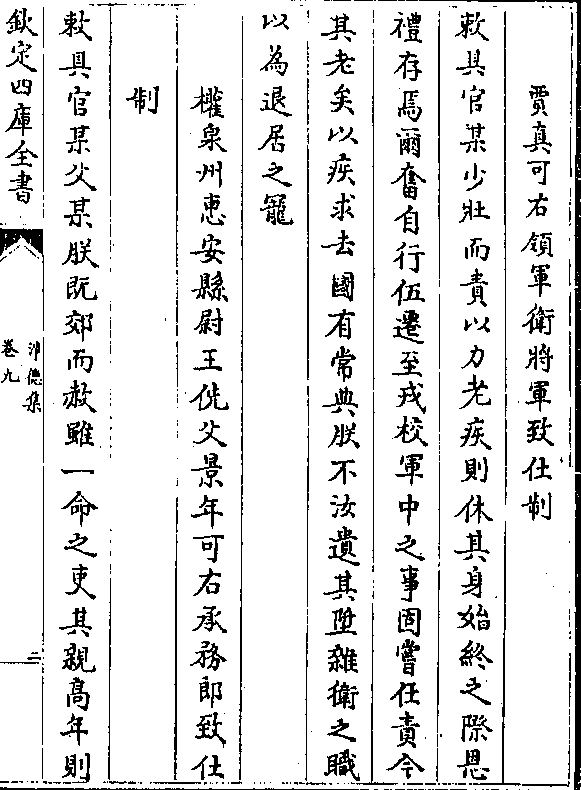 賈真可右領軍衛將軍致仕制
敕具官某少壯而責以力老疾則休其身始終之際恩
禮存焉爾奮自行伍遷至戎校軍中之事固嘗任責今
其老矣以疾求去國有常典朕不汝遺其陞雜衛之職
以為退居之寵
權泉州惠安縣尉王侁父景年可右承務郎致仕
制
敕具官某父某朕既郊而赦雖一命之吏其親高年則
欽定四庫全書
淨德集
卷九
二